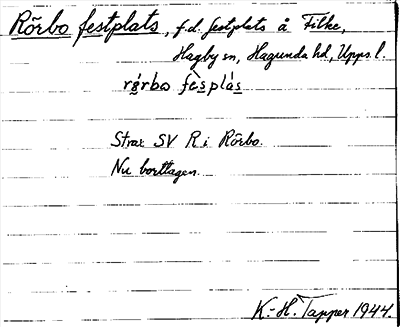 Rörbo festplats, f.d. festplats å Filke,
Hagby sn, Hagunda hd, Upps. l.
rö́rbo fèsplás
Strax SV R i Rörbo.
Nu borttagen.
K.-H. Tapper 1944.